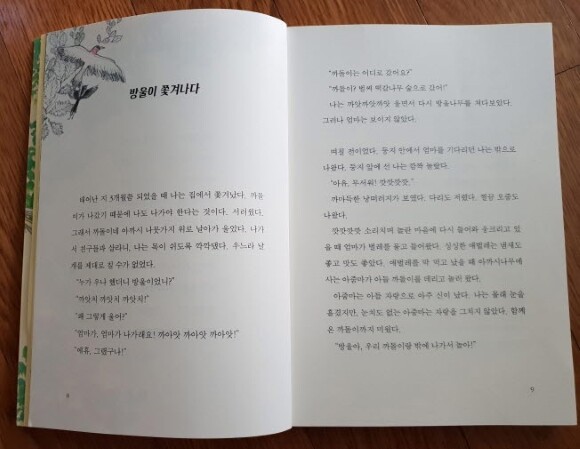 방울이 쫓겨나다
태어난 지 5개월쯤 되었을 때 나는 집에서 쫓겨났다. 까돌
이가 나갔기 때문에 나도 나가야 한다는 것이다. 서러웠다.
그래서 까돌이네 아까시나뭇가지 위로 날아가 울었다. 나가
서 친구들과 살라니, 나는 목이 쉬도록 깍깍했다. 우느라 날
개를 제대로 칠 수가 없었다.
"누가 우나 했더니 방울이었니?"
"까앗치 까앗치 까앗치!"
"왜 그렇게 울어?"
"엄마가, 엄마가 나가래요! 까아앗 까아앗 까아앗!"
"에휴, 그랬구나!"
8
"까돌이는 어디로 갔어요?"
"까돌이? 벌써 떡갈나무 숲으로 갔어!"
나는 까앗까앗까앗 울면서 다시 방울나무를 쳐다보았다.
그러나 엄마는 보이지 않았다.
며칠 전이었다. 둥지 안에서 엄마를 기다리던 나는 밖으로
나왔다. 둥지 앞에 선 나는 깜짝 놀랐다.
"아유, 무서워! 깟깟깟깟."
까마득한 낭떠러지가 보였다. 다리도 저렸다. 찔끔 오줌도
나왔다.
깟깟깟깟 소리치며 놀란 마음에 다시 들어와 웅크리고 있
을 때 엄마가 벌레를 물고 들어왔다. 싱싱한 애벌레는 냄새도
좋고 맛도 좋았다. 애벌레를 막 먹고 났을 때 아까시나무에
사는 아줌마가 아들 까돌이를 데리고 놀러 왔다.
아줌마는 아들 자랑으로 아주 신이 났다. 나는 몰래 눈을
흘겼지만, 눈치도 없는 아줌마는 자랑을 그치지 않았다. 함께
온 까돌이까지 미웠다.
"방울아, 우리 까돌이랑 밖에 나가서 놀아!"
9